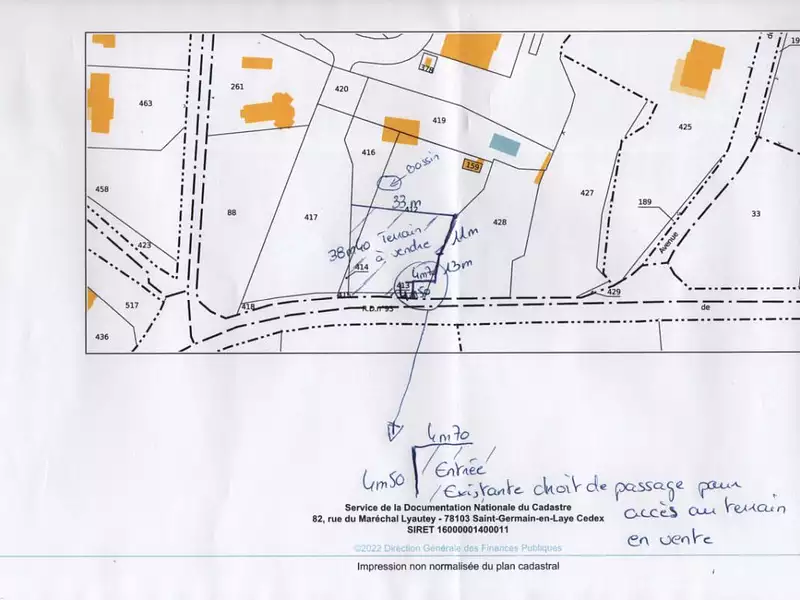 378
19
463
261
420
419
425
416
Bassin
159
458
88
417
33 m
427
189
33
428
Terrain
à vendre
38m40
11m
13m
Avenue
423
414
4m70
413
418
429
517
R.D.n°95
de
436
4m70
4m50
Entrée
Existante droit de passage pour
accès au terrain
en vente
Service de la Documentation Nationale du Cadastre
82, rue du Maréchal Lyautey - 78103 Saint-Germain-en-Laye Cedex
SIRET 16000001400011
©2022 Direction Générale des Finances Publiques
Impression non normalisée du plan cadastral